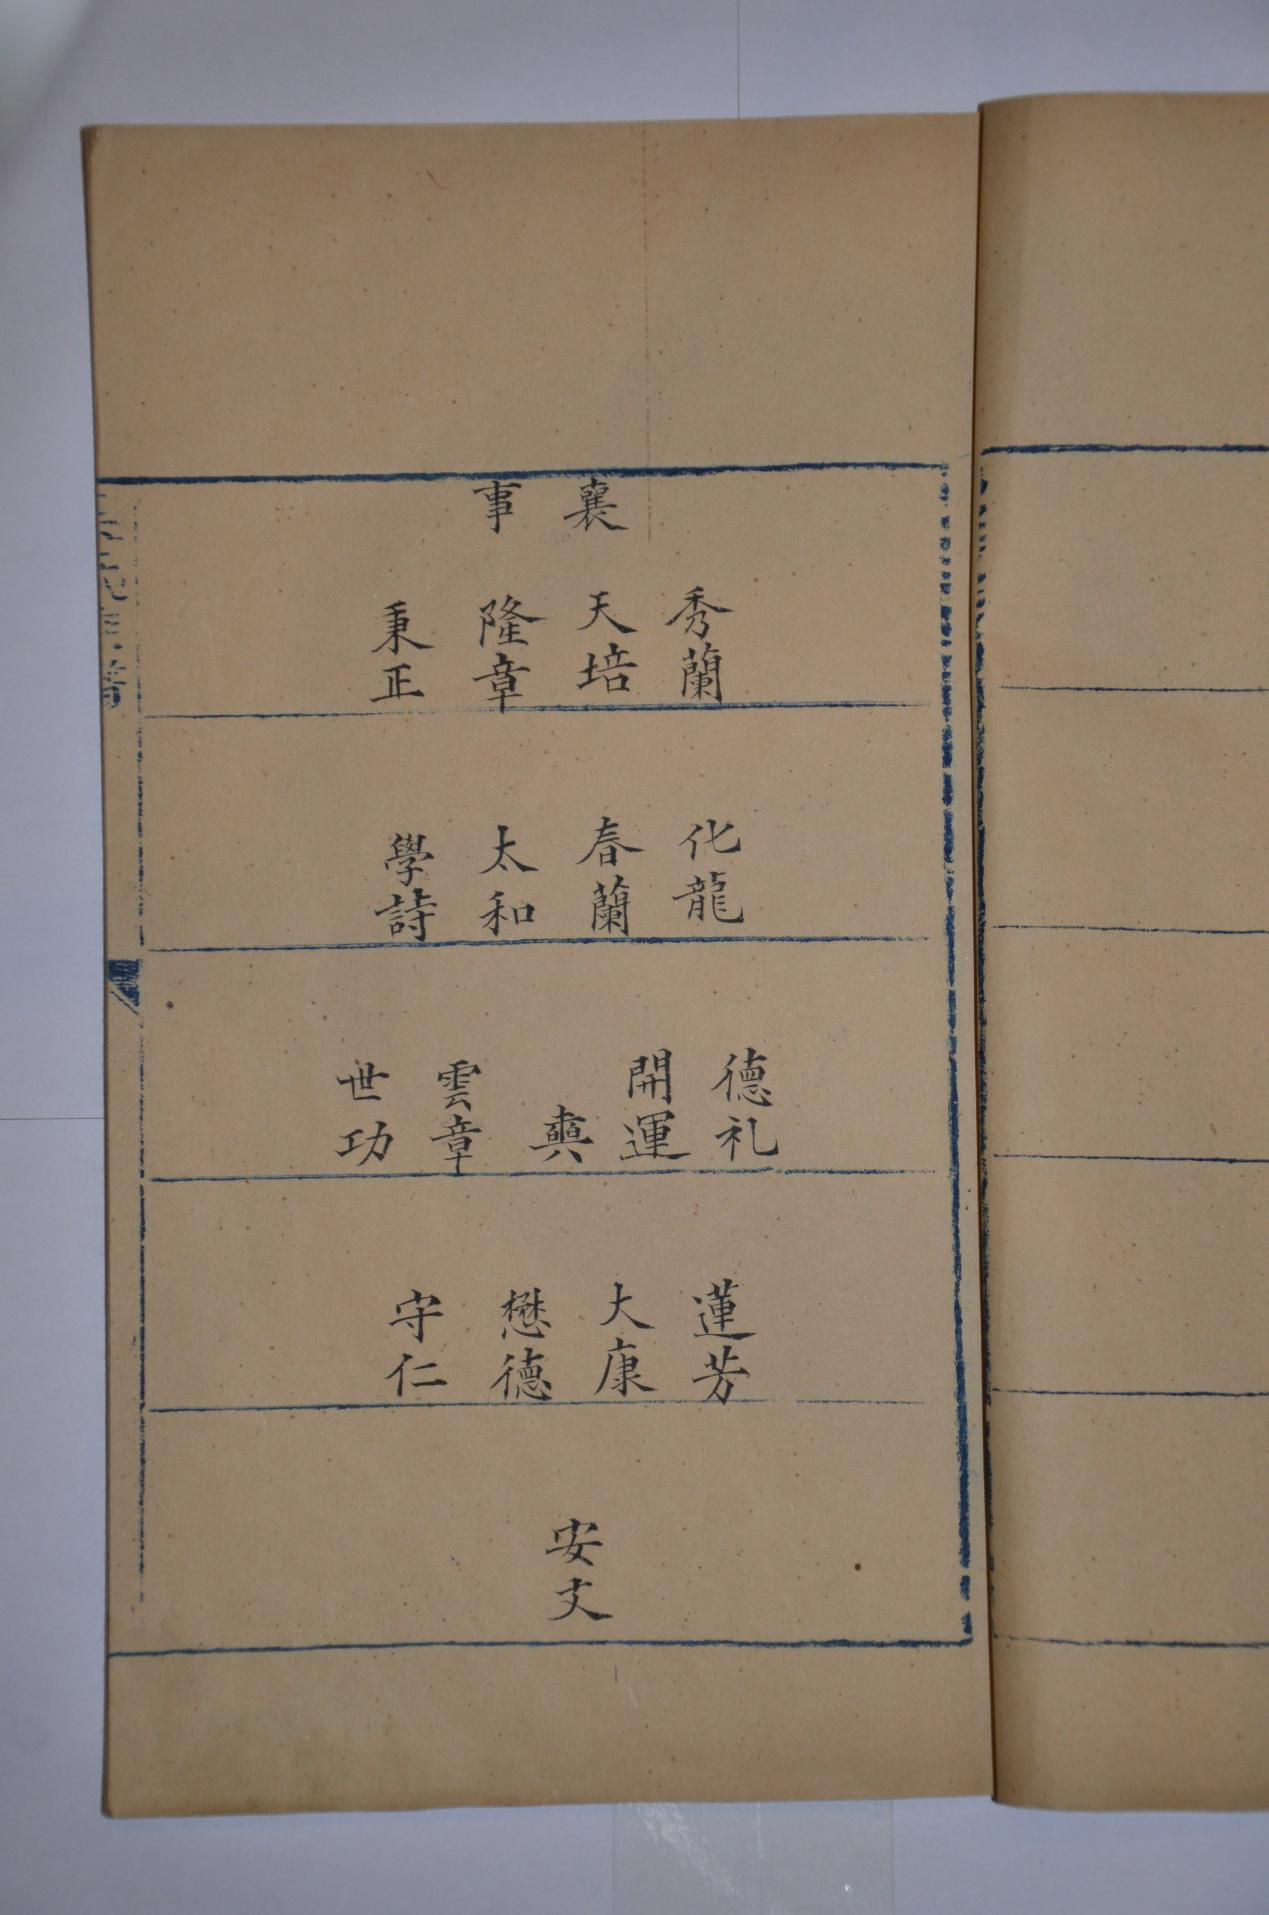 襄事
秀蘭
天培
隆章
秉正
化龍
春蘭
太和
學詩
德礼
開運
雲章
世功
蓮芳
大康
懋德
守仁
安